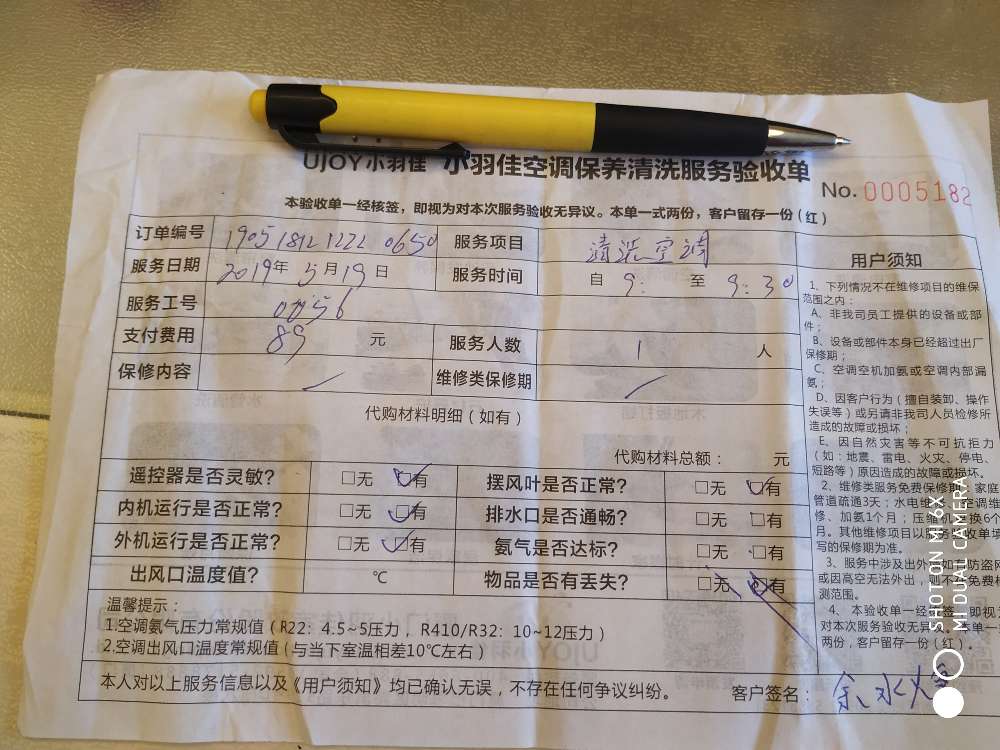 UJOY小羽佳 小羽佳空调保养清洗服务验收单
No. 0005182
本验收单一经核签，即视为对本次服务验收无异议。本单一式两份，客户留存一份（红）
订单编号 190518121222 0650 服务项目 清洗空调
服务日期 2019年 5月19日 服务时间 自 9: 至 9:30
服务工号 0056
支付费用 89 元 服务人数 1 人
保修内容 维修类保修期
代购材料明细（如有）
代购材料总额： 元
遥控器是否灵敏？ □无 □有 摆风叶是否正常？ □无 □有
内机运行是否正常？ □无 □有 排水口是否通畅？ □无 □有
外机运行是否正常？ □无 □有 氨气是否达标？ □无 □有
出风口温度值？ ℃ 物品是否有丢失？ □无 □有
温馨提示：
1.空调氨气压力常规值（R22：4.5~5压力，R410/R32：10~12压力）
2.空调出风口温度常规值（与当下室温相差10℃左右）
本人对以上服务信息以及《用户须知》均已确认无误，不存在任何争议纠纷。 客户签名：
用户须知
1、下列情况不在维修项目的维保
范围之内：
A、非我司员工提供的设备或部
件；
B、设备或部件本身已经超过出厂
保修期；
C、空调空机加氨或空调内部漏
氨；
D、因客户行为（擅自装卸、操作
失误等）或另请非我司人员检修所
造成的故障或损坏；
E、因自然灾害等不可抗拒力
（如：地震、雷电、火灾、停电、
短路等）原因造成的故障或损坏。
2、维修类服务免费保修期：家庭
管道疏通3天；水电维 空调维
修、加氨1个月；压缩机 换6个
月。其他维修项目以服务 收单填
写的保修期为准。
3、服务中涉及出外 如 防盗网
或因高空无法外出，则不 免费检
测范围。
4、本验收单一经核签，即视为
对本次服务验收无异 本单一
两份，客户留存一份（红）。
SHOT ON MI 6X
MI DUAL CAMERA